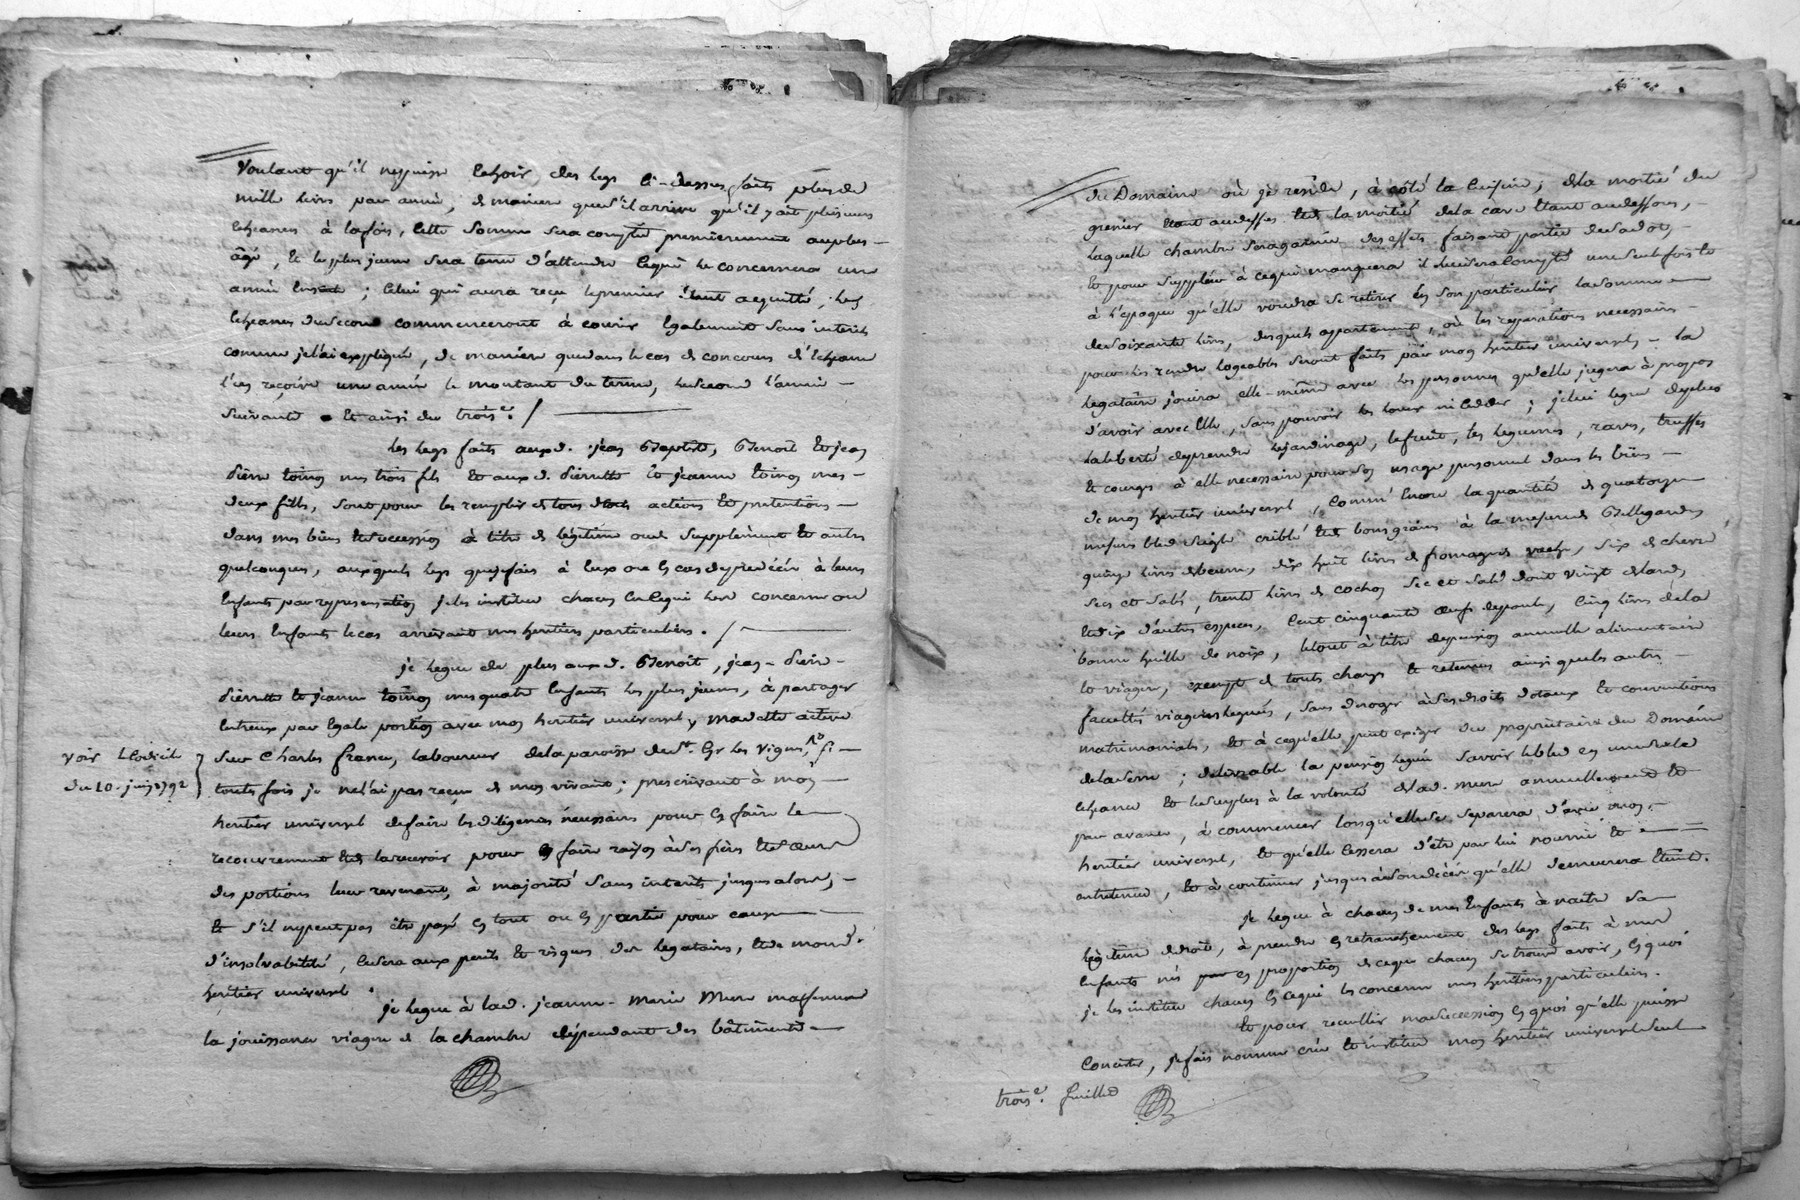 Voulant qu'il ne puisse echoir des legs ci-dessus faits plus de
mille livres par année, de maniere que s'il arrive qu'il y ait plusieurs
echeances à la fois, cette somme sera comptée premierement au plus
âgé, et le plus jeune sera tenu d'attendre ce qui le concernera une
année ; celui qui aura reçu le premier étant acquitté, les
echeances du second commenceront à courir egalement sans interets
comme je l'ai expliqué, de maniere que dans le cas de concours d'echeance
l'un reçoive une année le montant du terme, le second l'année
suivante et ainsi du trois.e /
les legs faits aux d. jean Baptiste, Benoit et jean
pierre toinon mes trois fils et aux d. pierrette et jeanne toinon mes
deux filles, sont pour les remplir de tous droits actions et pretentions
dans mes biens et succession à titre de légitime ou de supplèment et autres
quelconques, auxquels legs que je fais à eux ou en cas de predécès à leurs
enfants par representation je les institue chacun en ce qui les concerne ou
leurs enfants le cas arrivant mes heritiers particuliers. /
je legue de plus aux d. Benoit, jean-pierre
pierrette et jeanne toinon mes quatre enfants les plus jeunes, à partager
entreux par egale portion avec mon heritier universel, ma dette active
sur Charles france, laboureur de la paroisse de St. les Vignes, si
voir le Codicile
du 10. juin 1792
toutefois je ne l'ai pas reçue de mon vivant ; prescrivant à mon
heritier universel de faire les diligences nécessaires pour en faire le
recouvrement et de la recevoir pour en faire raison à ses frères et sœurs
des portions leur revenant, à majorité sans interets jusques alors,
et s'il ne peut pas etre payé en tout ou en partie pour cause
d'insolvabilité, ce sera aux perils et risques des legataires, et de mond.
heritier universel.
je legue à lad. jeanne-Marie Mure ma femme
la jouissance viagere de la chambre dépendant des bâtiments
du Domaine où je réside, à côté la cuisine, de la moitié du
grenier étant au dessus et de la moitié de la cave étant au dessous,
laquelle chambre sera garnie des effets faisant partie de sa dot,
et pour suppléer à ce qui manquera il lui sera compté une seule fois et
à l'epoque qu'elle voudra se retirer en son particulier la somme
de soixante livres, desquels appartements, où les reparations necessaires
pour les rendre logeables seront faites par mon heritier universel, la
legataire jouira elle-même avec les personnes qu'elle jugera à propos
d'avoir avec elle, sans pouvoir les louer ni ceder ; je lui legue de plus
la liberté de prendre le jardinage, le fruit, les legumes, raves, truffes
et courges à elle necessaires pour son usage personnel dans les biens
de mon heritier universel, comm' encore la quantité de quatorze
mesures bled seigle criblé et de bons grains à la mesure de Bellegarde,
quinze livres de beurre, dix huit livres de fromages vache, six de chevre
secs et salés, trente livres de cochon sec et salé dont vingt de lard,
et dix d'autres especes, cent cinquante œufs de poule, cinq livres de la
bonne huille de noix, le tout à titre de pension annuelle alimentaire
et viagere, exempte de toutes charges et retenues ainsi que les autres
facultés viageres leguées, sans deroger à ses droits dotaux et conventions
matrimoniales, et à ce qu'elle peut exiger du proprietaire du Domaine
de la serre ; delivrable la pension leguée savoir le bled en une seule
echeance et le surplus à la volonté de lad. Mure annuellement et
par avance, à commencer lorsqu'elle se separera d'avec mon
heritier universel, et qu'elle cessera d'être par lui nourrie et
entretenue, et à continuer jusques à son décès qu'elle demeurera éteinte.
je legue à chacun de mes enfants à naitre sa
légitime de droit, à prendre en retranchement des legs faits à mes
enfants nés en proportion de ce que chacun se trouve avoir, en quoi
je les institue chacun en ce qui les concerne mes heritiers particuliers.
et pour recueillir ma succession en quoi qu'elle puisse
consister, je fais nomme crée et institue mon heritier universel seul
trois.e feuillet